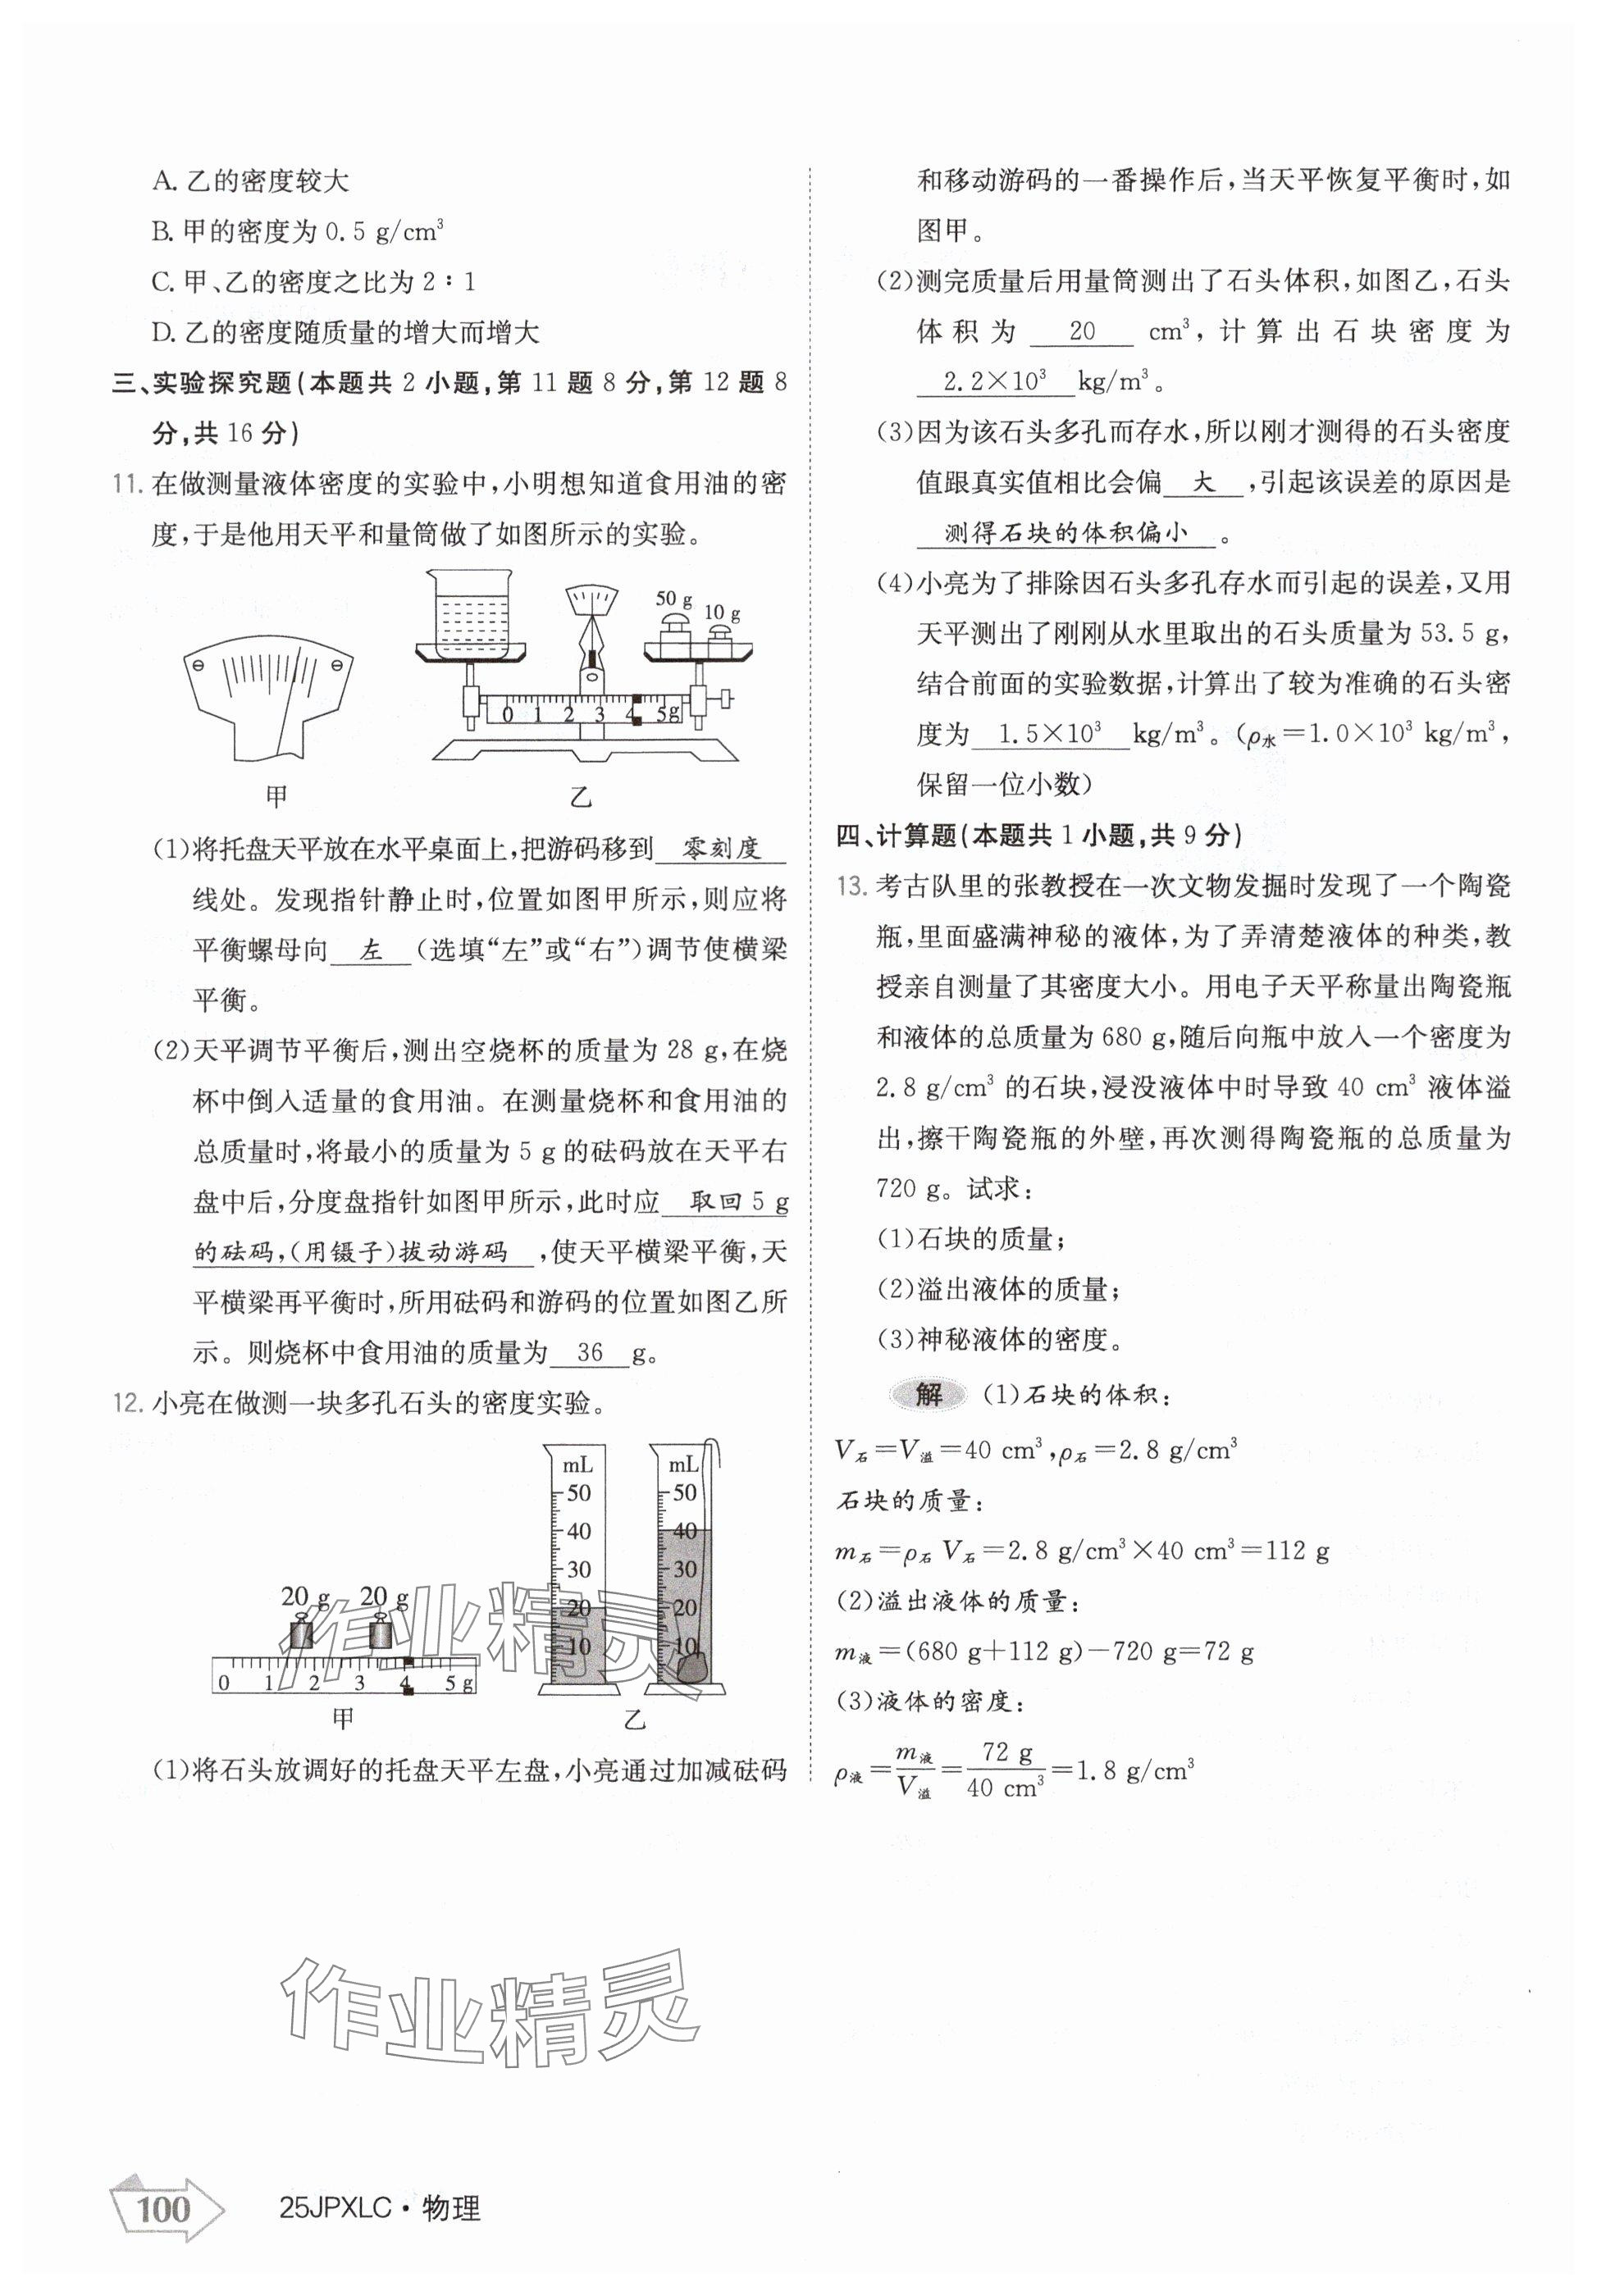 A. 乙的密度较大
B. 甲的密度为 0.5 g/cm³
C. 甲、乙的密度之比为 2∶1
D. 乙的密度随质量的增大而增大
三、实验探究题(本题共 2 小题,第 11 题 8 分,第 12 题 8
分,共 16 分)
11. 在做测量液体密度的实验中,小明想知道食用油的密
度,于是他用天平和量筒做了如图所示的实验。
50 g
10 g
0 1 2 3 4 5g
甲 乙
(1)将托盘天平放在水平桌面上,把游码移到 零刻度
线处。发现指针静止时,位置如图甲所示,则应将
平衡螺母向 左 (选填“左”或“右”)调节使横梁
平衡。
(2)天平调节平衡后,测出空烧杯的质量为 28 g,在烧
杯中倒入适量的食用油。在测量烧杯和食用油的
总质量时,将最小的质量为 5 g 的砝码放在天平右
盘中后,分度盘指针如图甲所示,此时应 取回 5 g
的砝码,(用镊子)拨动游码 ,使天平横梁平衡,天
平横梁再平衡时,所用砝码和游码的位置如图乙所
示。则烧杯中食用油的质量为 36 g。
12. 小亮在做测一块多孔石头的密度实验。
20 g 20 g
0 1 2 3 4 5 g
甲
mL
50
40
30
20
10
mL
50
40
30
20
10
乙
(1)将石头放调好的托盘天平左盘,小亮通过加减砝码
和移动游码的一番操作后,当天平恢复平衡时,如
图甲。
(2)测完质量后用量筒测出了石头体积,如图乙,石头
体积为 20 cm³,计算出石块密度为
2.2×10³ kg/m³。
(3)因为该石头多孔而存水,所以刚才测得的石头密度
值跟真实值相比会偏 大 ,引起该误差的原因是
测得石块的体积偏小 。
(4)小亮为了排除因石头多孔存水而引起的误差,又用
天平测出了刚刚从水里取出的石头质量为 53.5 g,
结合前面的实验数据,计算出了较为准确的石头密
度为 1.5×10³ kg/m³。(ρ水=1.0×10³ kg/m³,
保留一位小数)
四、计算题(本题共 1 小题,共 9 分)
13. 考古队里的张教授在一次文物发掘时发现了一个陶瓷
瓶,里面盛满神秘的液体,为了弄清楚液体的种类,教
授亲自测量了其密度大小。用电子天平称量出陶瓷瓶
和液体的总质量为 680 g,随后向瓶中放入一个密度为
2.8 g/cm³ 的石块,浸没液体中时导致 40 cm³ 液体溢
出,擦干陶瓷瓶的外壁,再次测得陶瓷瓶的总质量为
720 g。试求:
(1)石块的质量;
(2)溢出液体的质量;
(3)神秘液体的密度。
解 (1)石块的体积:
V石=V溢=40 cm³,ρ石=2.8 g/cm³
石块的质量:
m石=ρ石V石=2.8 g/cm³×40 cm³=112 g
(2)溢出液体的质量:
m液=(680 g+112 g)-720 g=72 g
(3)液体的密度:
ρ液=m液/V溢=72 g/40 cm³=1.8 g/cm³
作业精灵
作业精灵
100 25JPXLC·物理